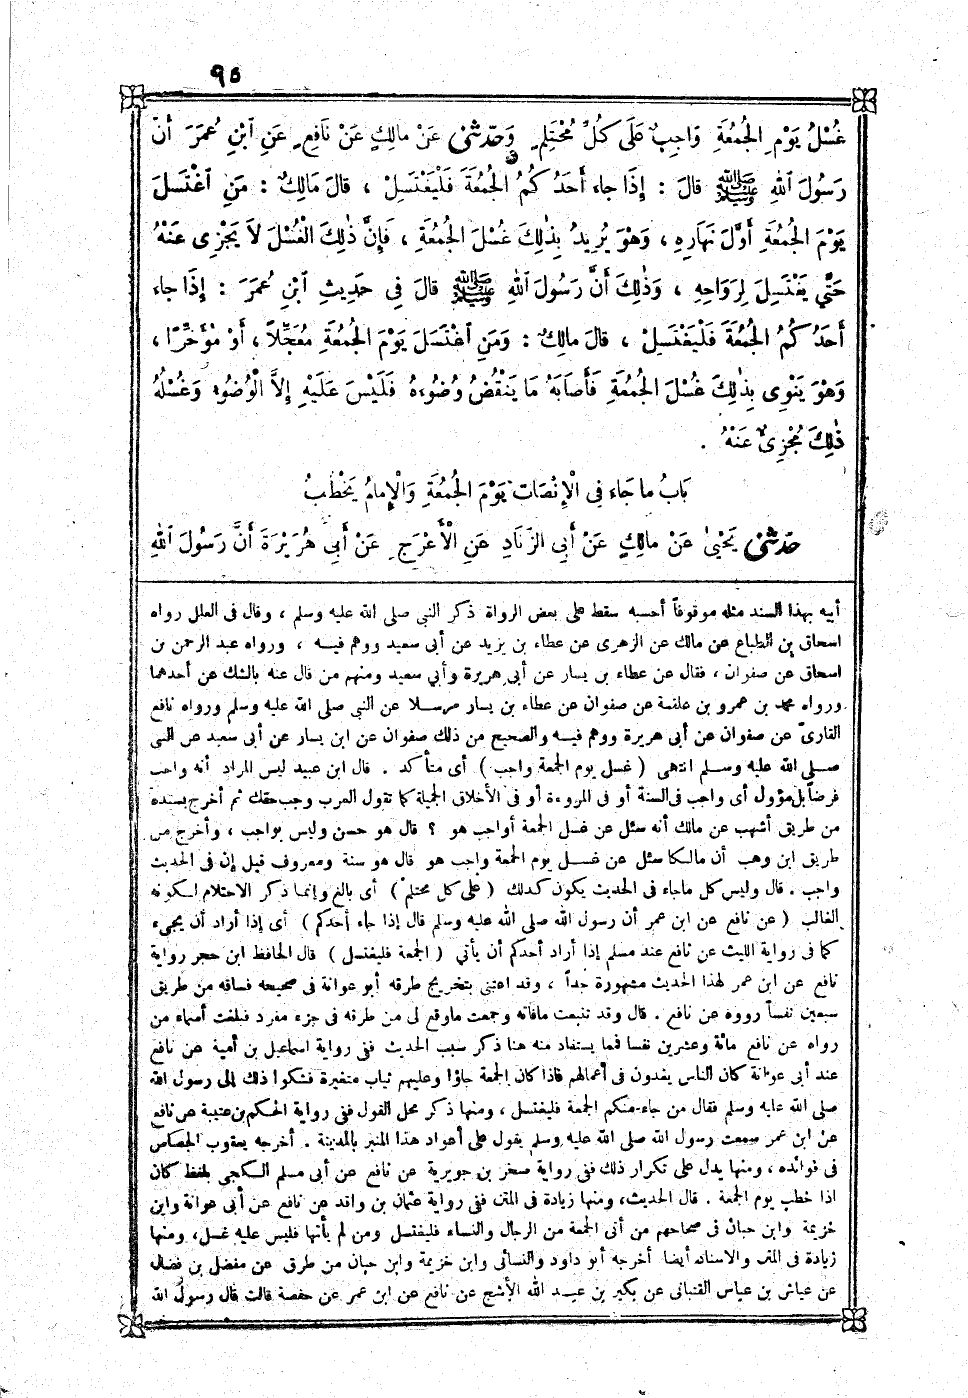 ٩٥
غُسْلُ يَوْمِ الْجُمُعَةِ وَاجِبٌ عَلَى كُلِّ مُحْتَلِمٍ وَحَدَّثَنِي عَنْ مَالِكٍ عَنْ نَافِعٍ عَنِ ابْنِ عُمَرَ أَنَّ
رَسُولَ اللهِ ﷺ قَالَ : إِذَا جَاءَ أَحَدُكُمُ الْجُمُعَةَ فَلْيَغْتَسِلْ ، قَالَ مَالِكٌ : مَنِ اغْتَسَلَ
يَوْمَ الْجُمُعَةِ أَوَّلَ نَهَارِهِ ، وَهُوَ يُرِيدُ بِذٰلِكَ غُسْلَ الْجُمُعَةِ ، فَإِنَّ ذٰلِكَ الْغُسْلَ لاَ يَجْزِي عَنْهُ
حَتَّى يَغْتَسِلَ لِرَوَاحِهِ ، وَذٰلِكَ أَنَّ رَسُولَ اللهِ ﷺ قَالَ فِي حَدِيثِ ابْنِ عُمَرَ : إِذَا جَاءَ
أَحَدُكُمُ الْجُمُعَةَ فَلْيَغْتَسِلْ ، قَالَ مَالِكٌ : وَمَنِ اغْتَسَلَ يَوْمَ الْجُمُعَةِ مُعَجِّلاً ، أَوْ مُؤَخِّرًا ،
وَهُوَ يَنْوِي بِذٰلِكَ غُسْلَ الْجُمُعَةِ فَأَصَابَهُ مَا يَنْقُضُ وُضُوءَهُ فَلَيْسَ عَلَيْهِ إِلاَّ الْوُضُوءُ وَغُسْلُهُ
ذٰلِكَ مُجْزِئٌ عَنْهُ .
بَابُ مَا جَاءَ فِي الْإِنْصَاتِ يَوْمَ الْجُمُعَةِ وَالْإِمَامُ يَخْطُبُ
حَدَّثَنِي يَحْيَى عَنْ مَالِكٍ عَنْ أَبِي الزِّنَادِ عَنِ الْأَعْرَجِ عَنْ أَبِي هُرَيْرَةَ أَنَّ رَسُولَ اللهِ
أبيه بهذا السند مثله موقوفاً أحسبه سقط على بعض الرواة ذكر النبي صلى الله عليه وسلم ، وقال فى العلل رواه
اسحاق بن الطباع عن مالك عن الزهرى عن عطاء بن يزيد عن أبى سعيد ووهم فيه ، ورواه عبد الرحمن بن
اسحاق عن صفوان ، فقال عن عطاء بن يسار عن أبى هريرة وأبي سعيد ومنهم من قال عنه بالشك عن أحدهما
ورواه محمد بن عمرو بن علقمة عن صفوان عن عطاء بن يسار مرسلا عن النبى صلى الله عليه وسلم ورواه نافع
القارئ عن صفوان عن أبى هريرة ووهم فيه والصحيح من ذلك صفوان عن ابن يسار عن أبى سعيد عن النبى
صلى الله عليه وسلم انتهى ( غسل يوم الجمعة واجب ) أى متأكد . قال ابن عبيد ليس المراد أنه واجب
فرضاً بل مؤول أى واجب فى السنة أو فى المروءة أو فى الأخلاق الجميلة كما تقول العرب وجب حقك ثم أخرج بسنده
من طريق أشهب عن مالك أنه سئل عن غسل الجمعة أواجب هو ؟ قال هو حسن وليس بواجب ، وأخرج من
طريق ابن وهب أن مالكا سئل عن غسل يوم الجمعة واجب هو قال هو سنة ومعروف قيل إن فى الحديث
واجب . قال وليس كل ماجاء فى الحديث يكون كذلك ( على كل محتلم ) أى بالغ وإنما ذكر الاحتلام لكونه
الغالب ( عن نافع عن ابن عمر أن رسول الله صلى الله عليه وسلم قال إذا جاء أحدكم ) أى إذا أراد أن يجىء
كما فى رواية الليث عن نافع عند مسلم إذا أراد أحدكم أن يأتي ( الجمعة فليغتسل ) قال الحافظ ابن حجر رواية
نافع عن ابن عمر لهذا الحديث مشهورة جداً ، وقد اعتنى بتخريج طرقه أبو عوانة فى صحيحه فساقه من طريق
سبعين نفساً رووه عن نافع . قال وقد تتبعت مافاته وجمعت ماوقع لى من طرقه فى جزء مفرد فبلغت أسماء من
رواه عن نافع مائة وعشرين نفسا فما يستفاد منه هنا ذكر سبب الحديث ففى رواية اسماعيل بن أمية عن نافع
عند أبى عوانة كان الناس يغدون فى أعمالهم فاذا كان الجمعة جاؤا وعليهم ثياب متغيرة فشكوا ذلك إلى رسول الله
صلى الله عليه وسلم فقال من جاء منكم الجمعة فليغتسل ، ومنها ذكر محل القول ففى رواية الحكم بن عتيبة عن نافع
عن ابن عمر سمعت رسول الله صلى الله عليه وسلم يقول على أعواد هذا المنبر بالمدينة . أخرجه يعقوب الجصاص
فى فوائده ، ومنها يدل على تكرار ذلك ففى رواية صخر بن جويرية عن نافع عن أبى مسلم الكجي بلفظ كان
اذا خطب يوم الجمعة . قال الحديث ، ومنها زيادة فى المتن ففى رواية عثمان بن واقد عن نافع عن أبى عوانة وابن
خزيمة وابن حبان فى صحاحهم من أتى الجمعة من الرجال والنساء فليغتسل ومن لم يأتها فليس عليه غسل ، ومنها
زيادة فى المتن والاسناد أيضا أخرجه أبو داود والنسائى وابن خزيمة وابن حبان من طرق عن مفضل بن فضالة
عن عياش بن عباس القتبانى عن بكير بن عبد الله الأشج عن نافع عن ابن عمر عن حفصة قالت قال رسول الله